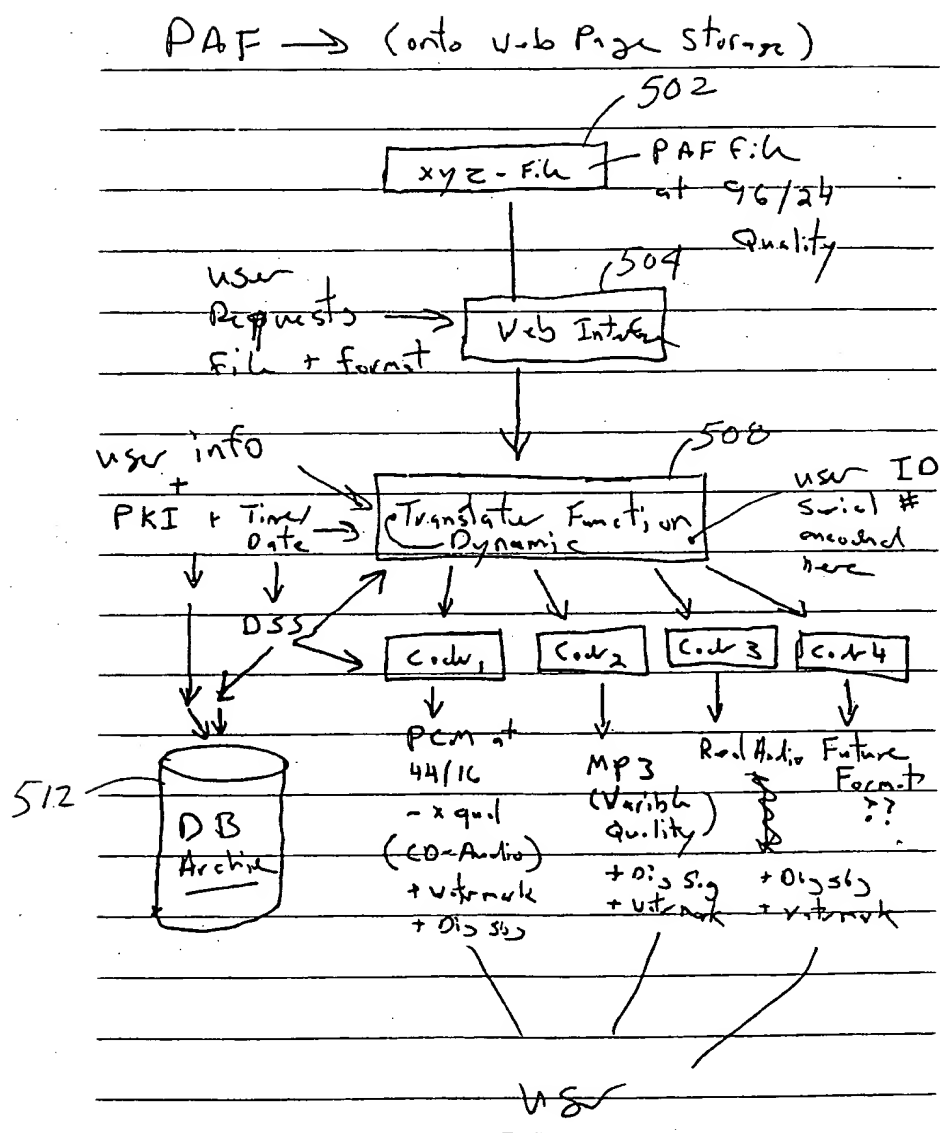 PAF → (onto Web Page Storage)
502
xyz-File
PAF file
at 96/24
Quality
504
user
Requests
File + format
Web Interface
508
user info
+
PKI + Time/
Date
Translator Function
Dynamic
user ID
Serial #
encoded
here
DSS
Coder 1
Codr 2
Codr 3
Codr 4
512
DB
Archive
PCM at
44/16
- x qual
(CD-Audio)
+ watermark
+ Dig sig
MP3
(Varible
Quality)
+ Dig Sig
+ watermark
Real Audio
Future
Format
??
+ Dig sig
+ watermark
user